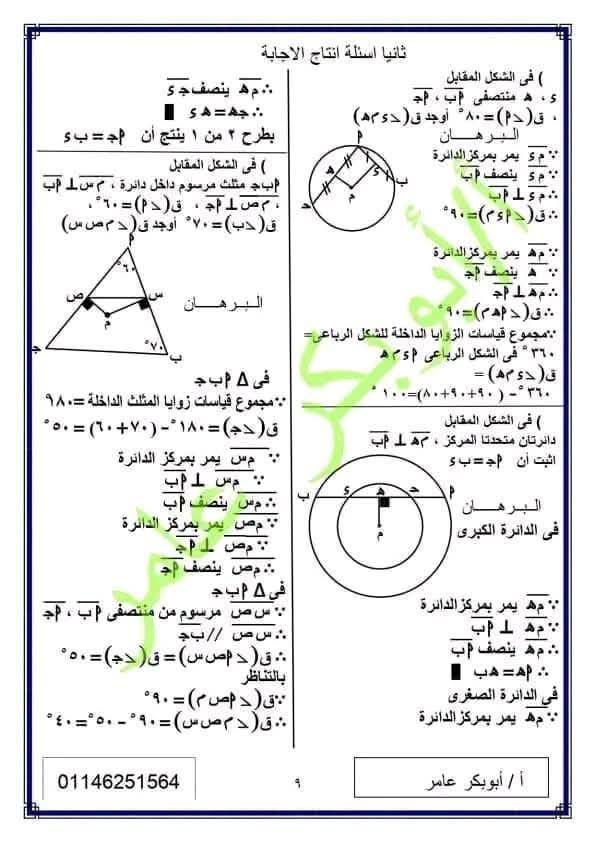 ثانيا اسئلة انتاج الاجابة
) فى الشكل المقابل
ء ، ه منتصفى اب ، اج
، ق(دا)=٨٠° أوجد ق(دءمه)
البرهان
∵ مء يمر بمركز الدائرة
∵ مء ينصف اب
∴ مء ⊥ اب
∴ ق(داءم)=٩٠°
∵ مه يمر بمركز الدائرة
∵ ه ينصف اج
∴ مه ⊥ اج
∴ ق(داهم)=٩٠°
∵ مجموع قياسات الزوايا الداخلة للشكل الرباعى=
٣٦٠° فى الشكل الرباعى اءمه
ق(دءمه) =
٣٦٠° - (٩٠+٩٠+٨٠)=١٠٠°
ا
ء
ب
ه
م
ج
) فى الشكل المقابل
دائرتان متحدتا المركز ، مه ⊥ اب
اثبت أن اج = بء
ا
ج
ه
ء
ب
م
البرهان
فى الدائرة الكبرى
∵ مه يمر بمركز الدائرة
∵ مه ⊥ اب
∴ مه ينصف اب
∴ اه = هب
فى الدائرة الصغرى
∵ مه يمر بمركز الدائرة
∴ مه ينصف جء
∴ جه = هء
بطرح ٢ من ١ ينتج أن اج = بء
) فى الشكل المقابل
ابج مثلث مرسوم داخل دائرة ، مس ⊥ اب
، مص ⊥ اج ، ق(دا)=٦٠°،
ق(دب)=٧٠° أوجد ق(دمصس)
ا
٦٠°
ص
س
م
٧٠°
ج
ب
البرهان
فى Δ ابج
∵ مجموع قياسات زوايا المثلث الداخلة =٩٨٠
ق(دج)=١٨٠° - (٧٠+٦٠) =٥٠°
∵ مس يمر بمركز الدائرة
∵ مس ⊥ اب
∴ مس ينصف اب
∵ مص يمر بمركز الدائرة
∵ مص ⊥ اج
∴ مص ينصف اج
فى Δ ابج
∵ سص مرسوم من منتصفى اب ، اج
∴ سص // بج
∴ ق(داصس)=ق(دج)=٥٠°
بالتناظر
∵ ق(داصم)=٩٠°
∴ ق(دمصس)=٩٠° - ٥٠°=٤٠°
أ/أبوبكر عامر
أ / أبوبكر عامر
٩
01146251564